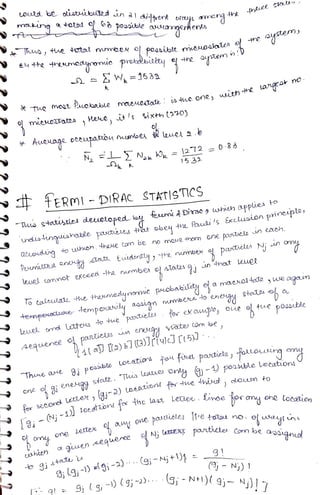 could be distributed in 21 different ways among the three states
making a total of 63 possible arrangements
Thus, the total number of possible microstates of the system,
or the thermodynamic probability of the system is:
Ω = Σ Wk = 1532
k
* The most Probable macrostate: is the one, with the largest no.
of microstates, Here, it's sixth (270)
* Average occupation number of level 2 is
N̄2 = 1/Ω Σ N2k Wk = 1272/1532 = 0.83
k
# FERMI - DIRAC STATISTICS
This statistics developed by Fermi & Dirac, which applies to
indistinguishable particles that obey the Pauli's Exclusion principle,
according to whom there can be no more than one particle in each
permitted energy state. Evidently, the number of particles Nj in any
level cannot exceed the number of states gj in that level
To calculate the thermodynamic probability of a macrostate, we again
temporarily assign numbers to energy states of a
level and letters to the particles. for example, one of the possible
sequence of particles in energy state can be,
[(1a)] [(2)b] [(3)] [(4)c] [(5)] ...
There are gj possible locations for first particle, following any
one of gj energy state. This leaves only (gj-1) possible locations
for second letter, (gj-2) locations for the third, down to
[gj-(Nj-1)] locations for the last letter. Since for any one location
of any one letter of any one particle, the total no. of ways in
which a given sequence of Nj letters particles can be assigned
to gj states is
gj (gj-1) (gj-2).... (gj-Nj+1) = g! / (gj-Nj)!
[∵ g! = gj (gj-1) (gj-2)... (gj-N+1)(gj-Nj)!]